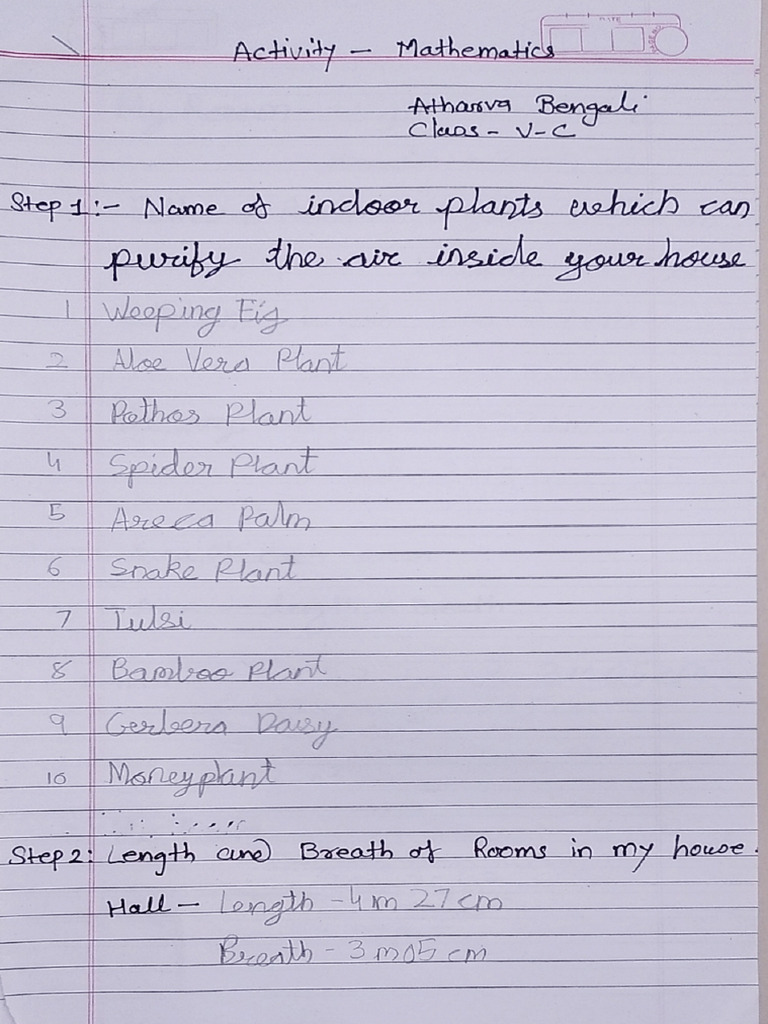 Activity - Mathematics
Atharva Bengali
Class - V-C
Step 1:- Name of indoor plants which can
purify the air inside your house
1 Weeping Fig
2 Aloe Vera Plant
3 Pothos Plant
4 Spider Plant
5 Areca Palm
6 Snake Plant
7 Tulsi
8 Bamboo Plant
9 Gerbera Daisy
10 Moneyplant
Step 2: Length and Breath of Rooms in my house.
Hall - Length - 4m 27cm
Breath - 3m05cm